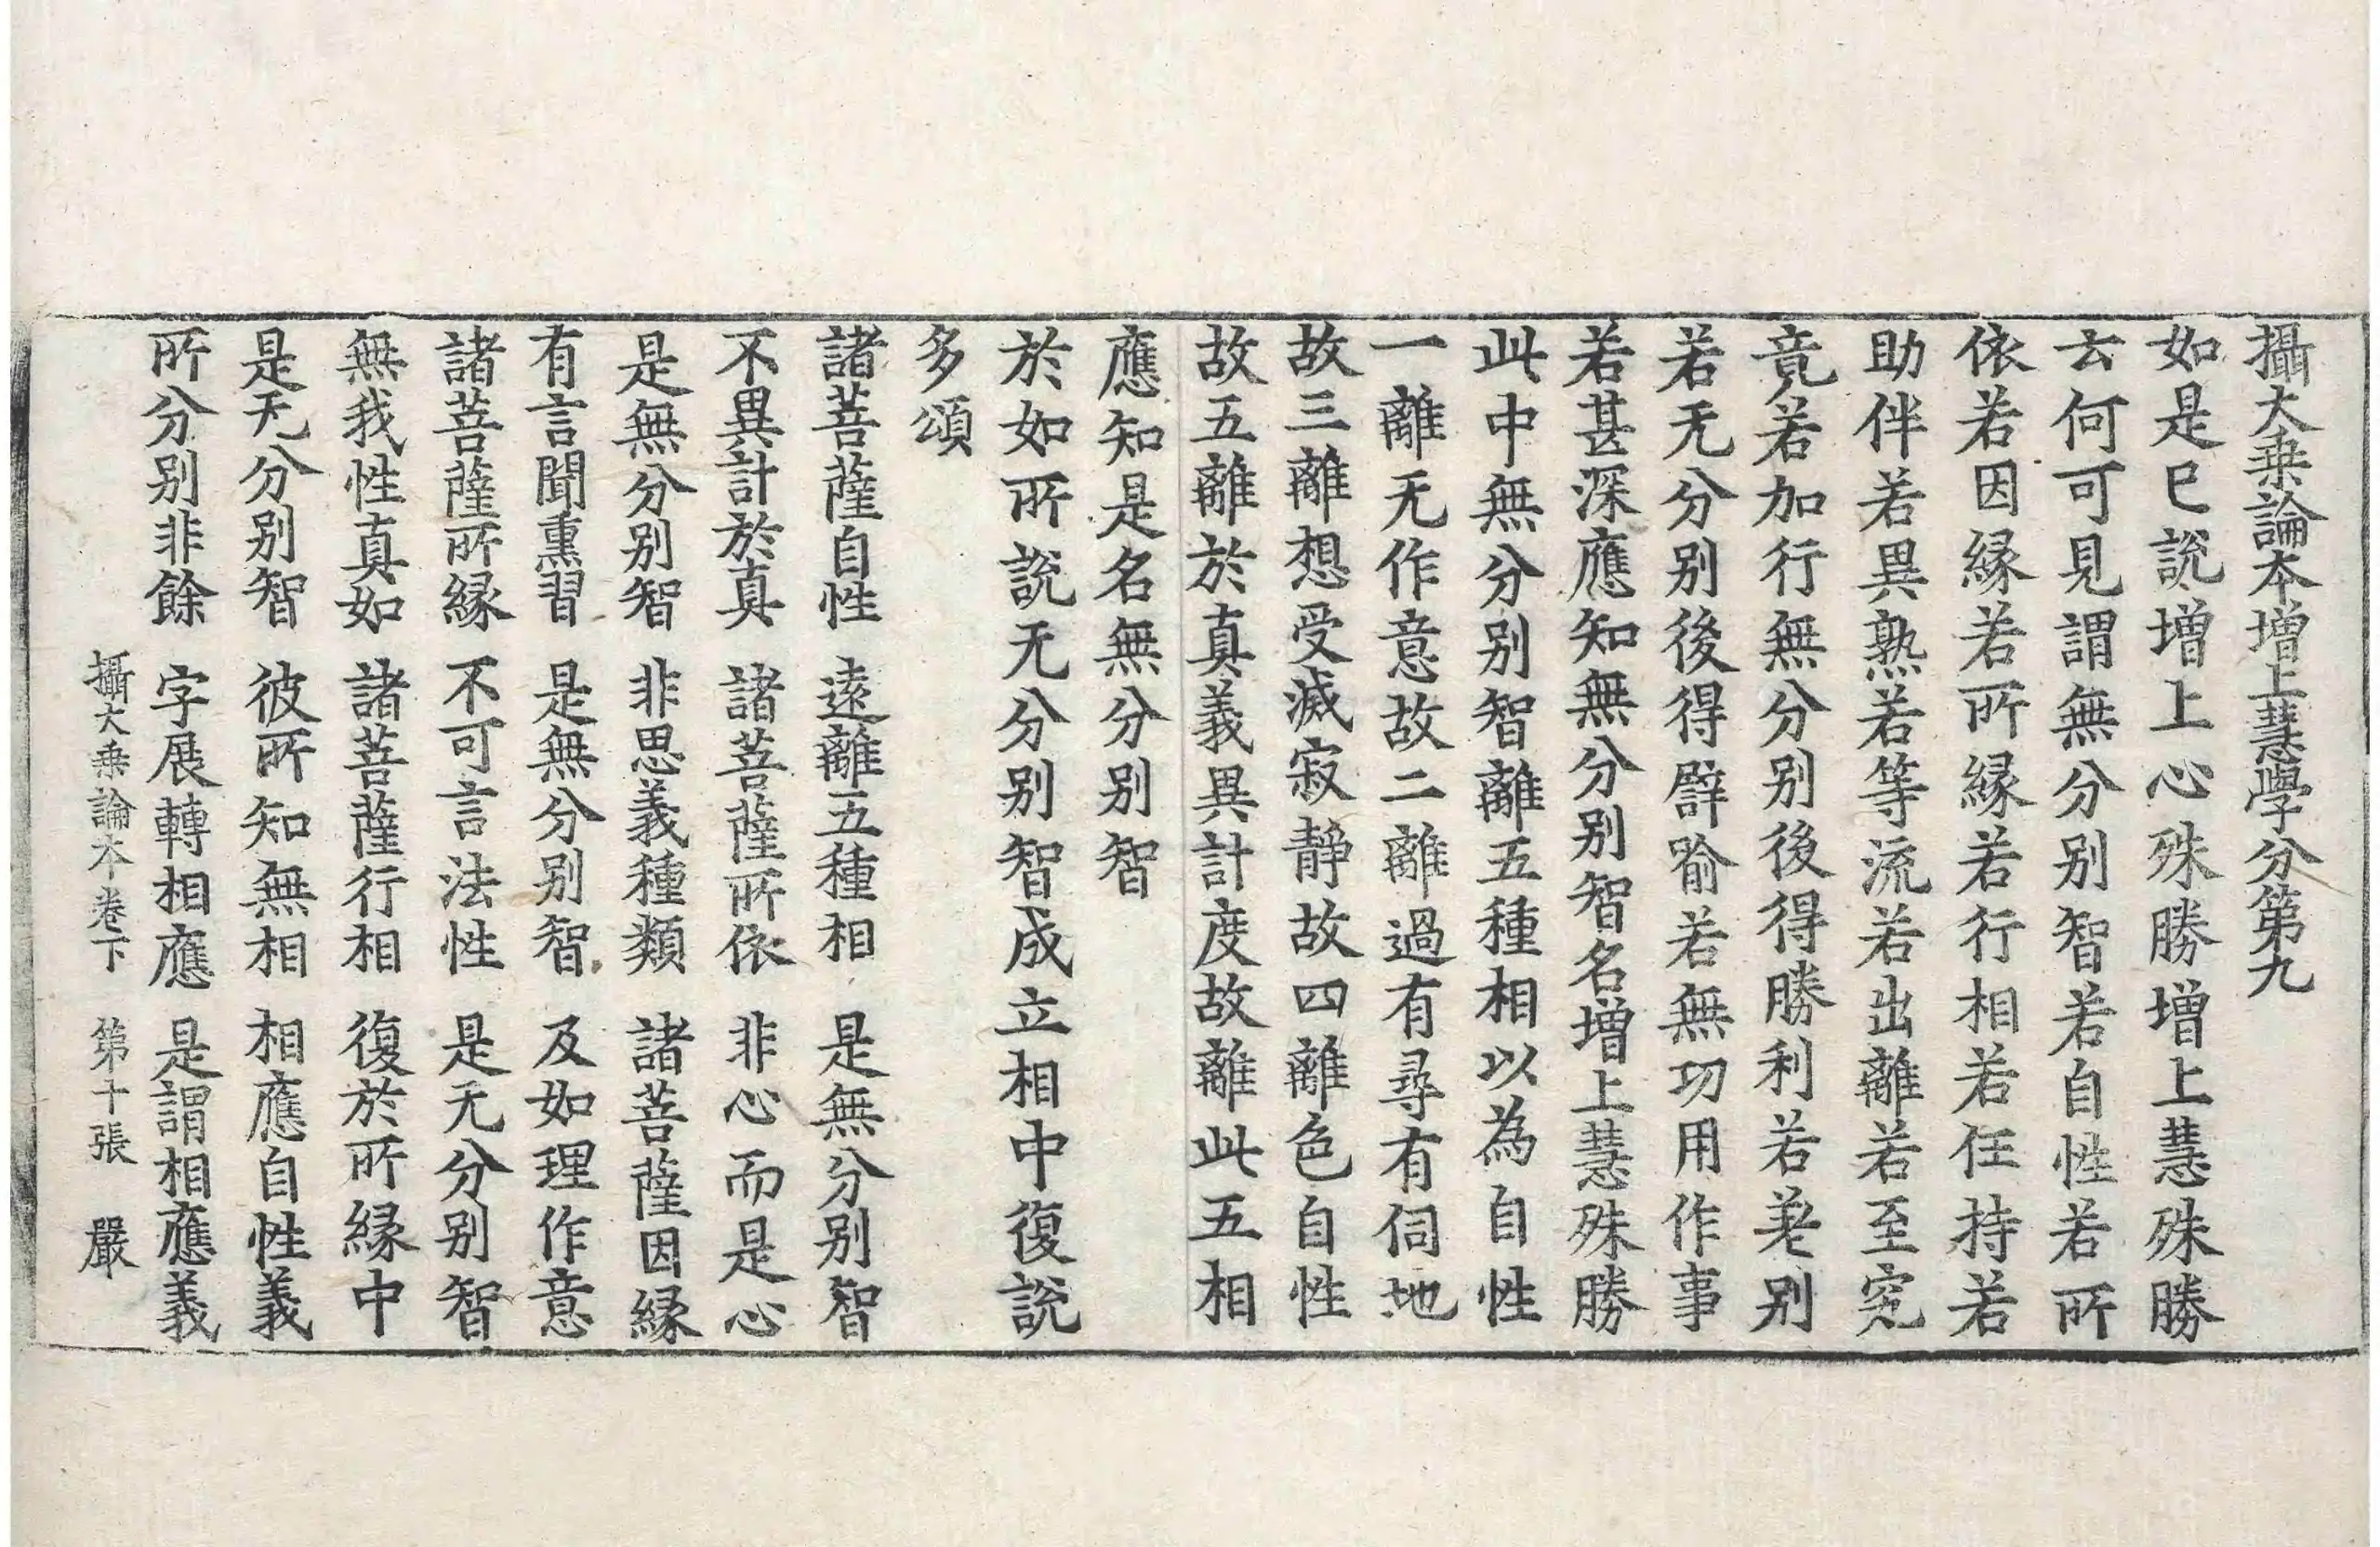 攝大乗論本増上慧學分第九
如是已說増上心殊勝増上慧殊勝
云何可見謂無分别智若自性若所
依若因縁若所縁若行相若任持若
助伴若異熟若等流若出離若至究
竟若加行無分别後得勝利若差别
若无分别後得譬喻若無功用作事
若甚深應知無分别智名増上慧殊勝
此中無分别智離五種相以為自性
一離无作意故二離過有尋有伺地
故三離想受滅寂靜故四離色自性
故五離於真義異計度故離此五相
應知是名無分别智
於如所說无分别智成立相中復說
多頌
諸菩薩自性 遠離五種相 是無分别智
不異計於真 諸菩薩所依 非心而是心
是無分别智 非思義種類 諸菩薩因縁
有言聞熏習 是無分别智 及如理作意
諸菩薩所縁 不可言法性 是无分别智
無我性真如 諸菩薩行相 復於所縁中
是无分别智 彼所知無相 相應自性義
所分别非餘 字展轉相應 是謂相應義
攝大乗論本卷下 第十張 嚴